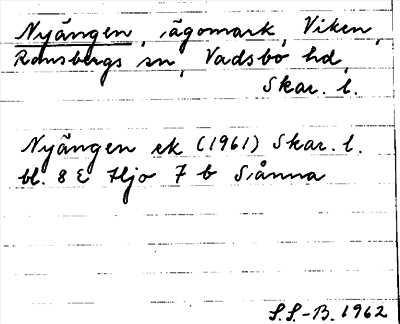 Nyängen, ägomark, Viken,
Ransbergs sn, Vadsbo hd,
Skar. l.
Nyängen ek (1961) Skar. l.
bl. 8 E Hjo 7 b Sjånna
S.S.-B. 1962